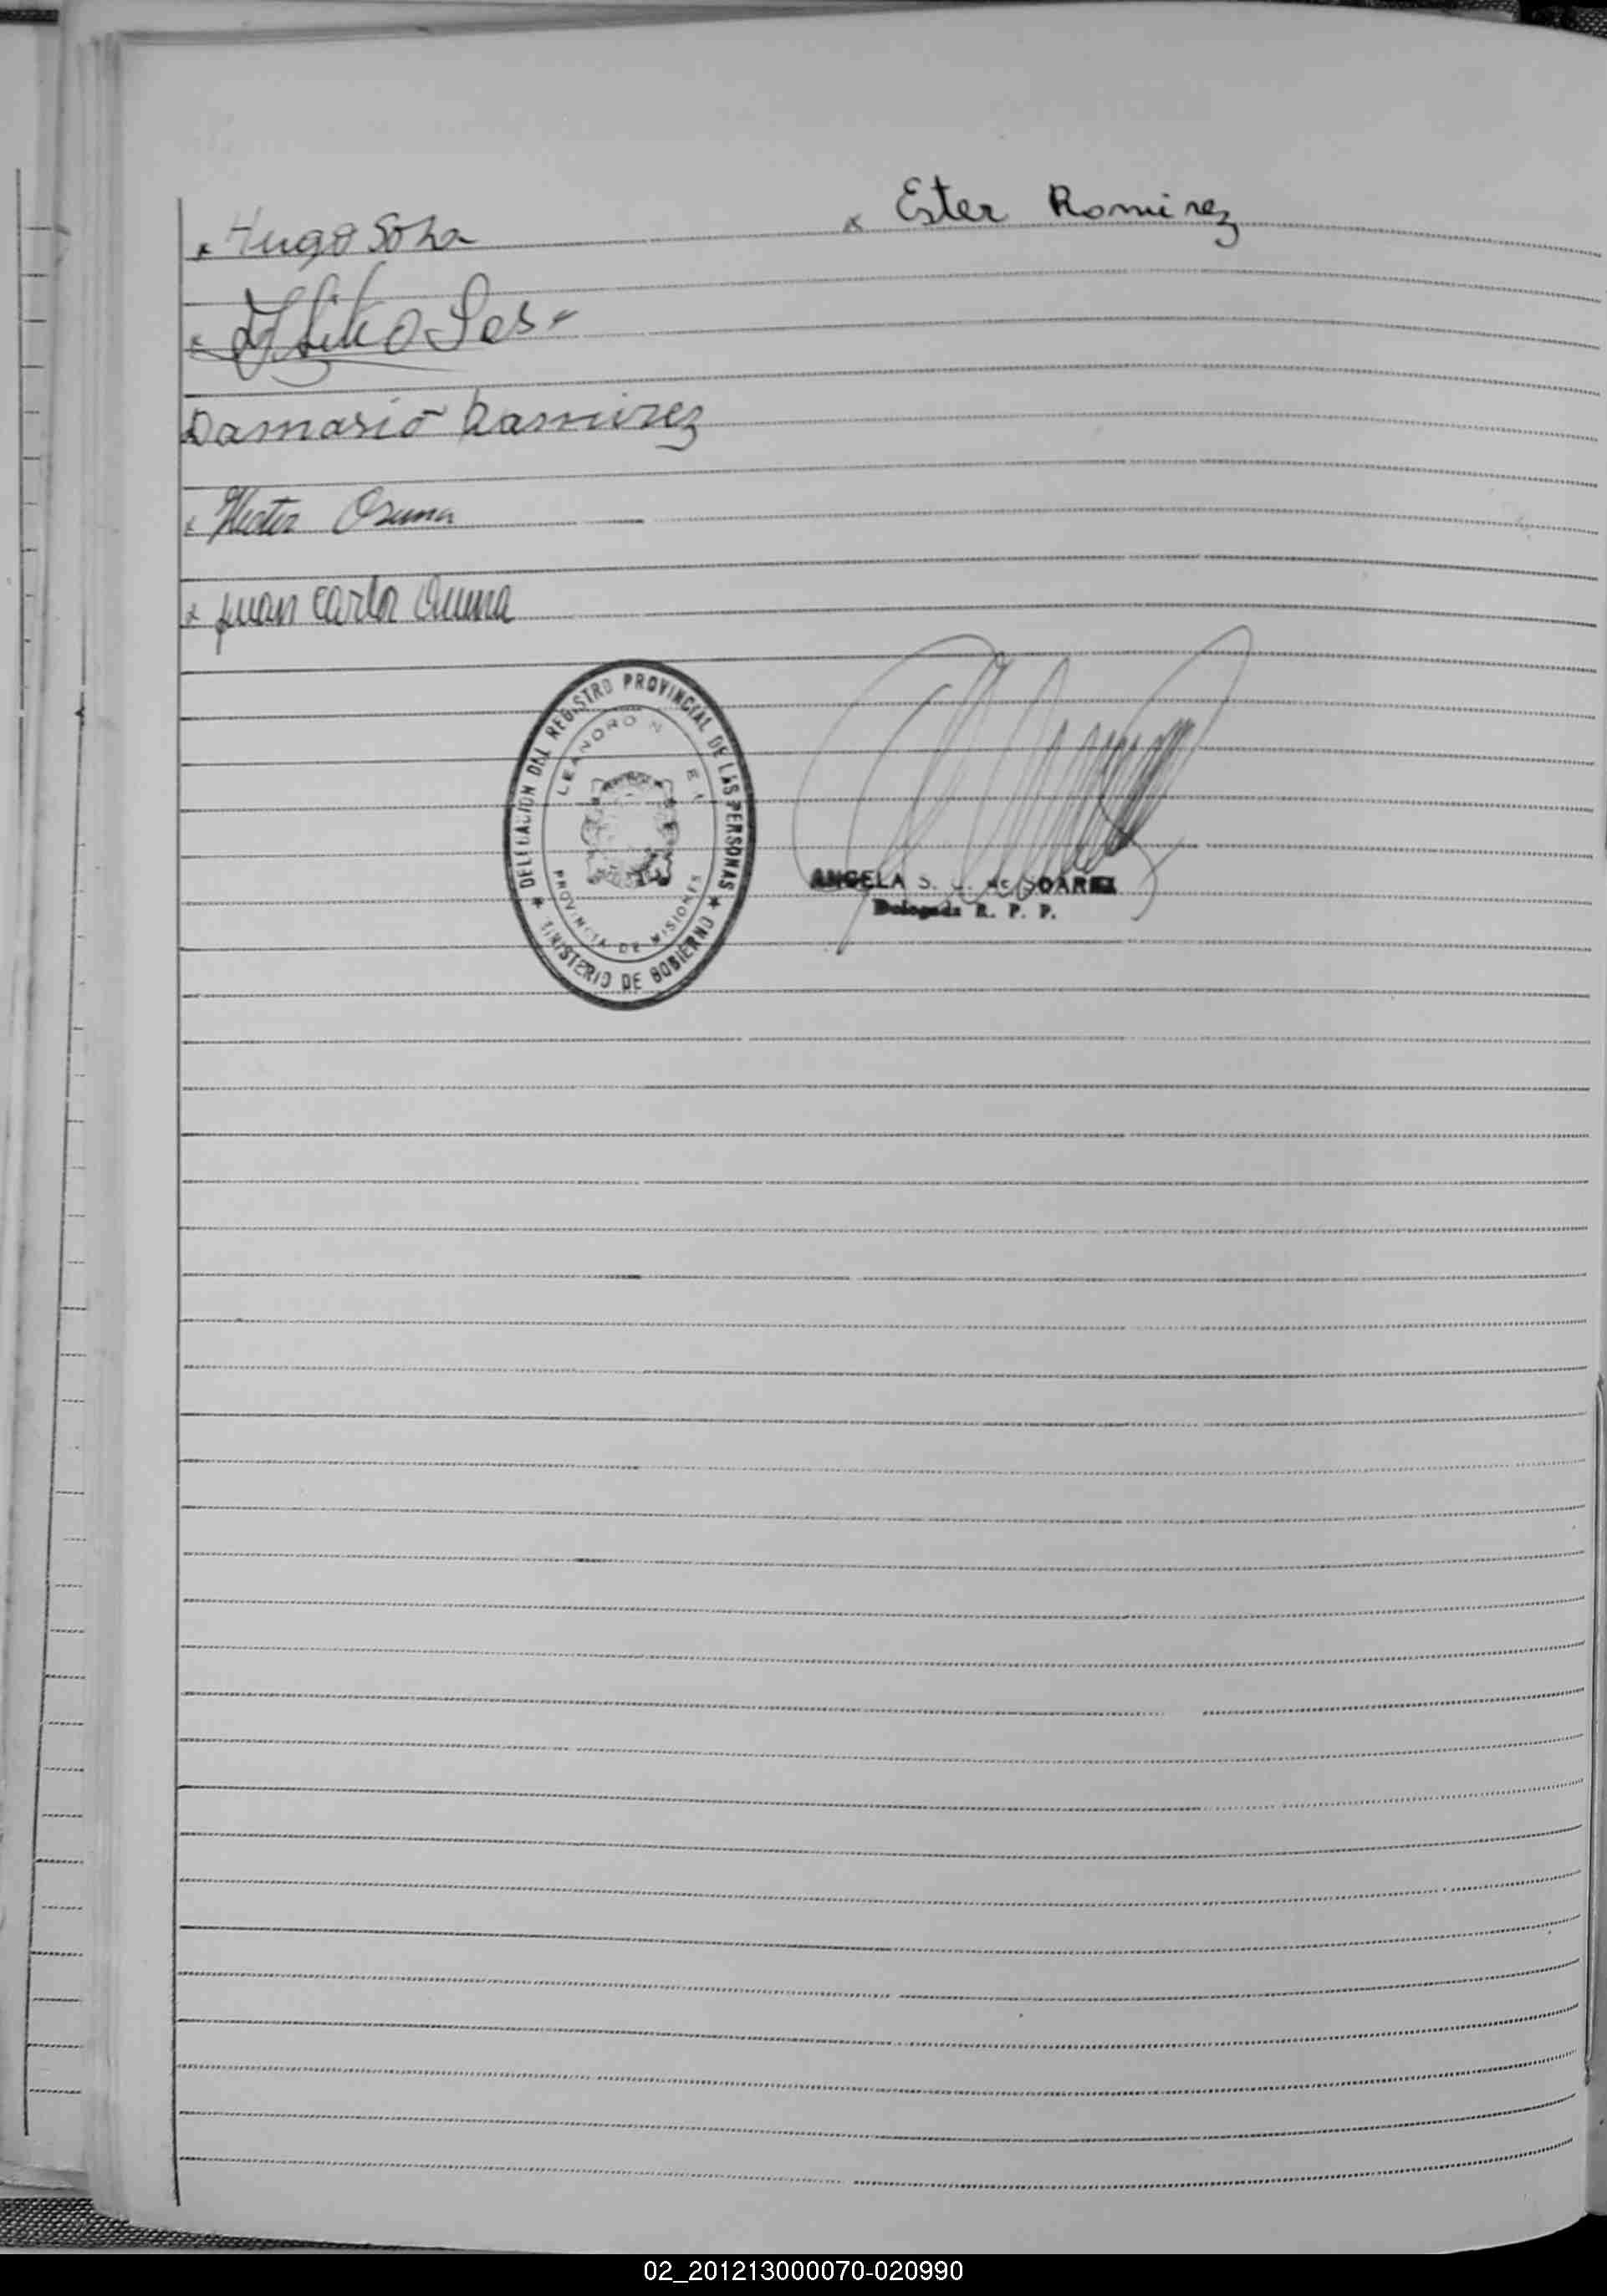 x Hugo Sosa x Ester Romirez
x
Damasio Ramirez
x Hector Osuna
x Juan Carlos Osuna
DELEGACION DEL REGISTRO PROVINCIAL DE LAS PERSONAS
LEANDRO N
PROVINCIA DE MISIONES
★ MINISTERIO DE GOBIERNO ★
ANGELA S. de SOAREZ
Delegada R. P. P.
02_201213000070-020990